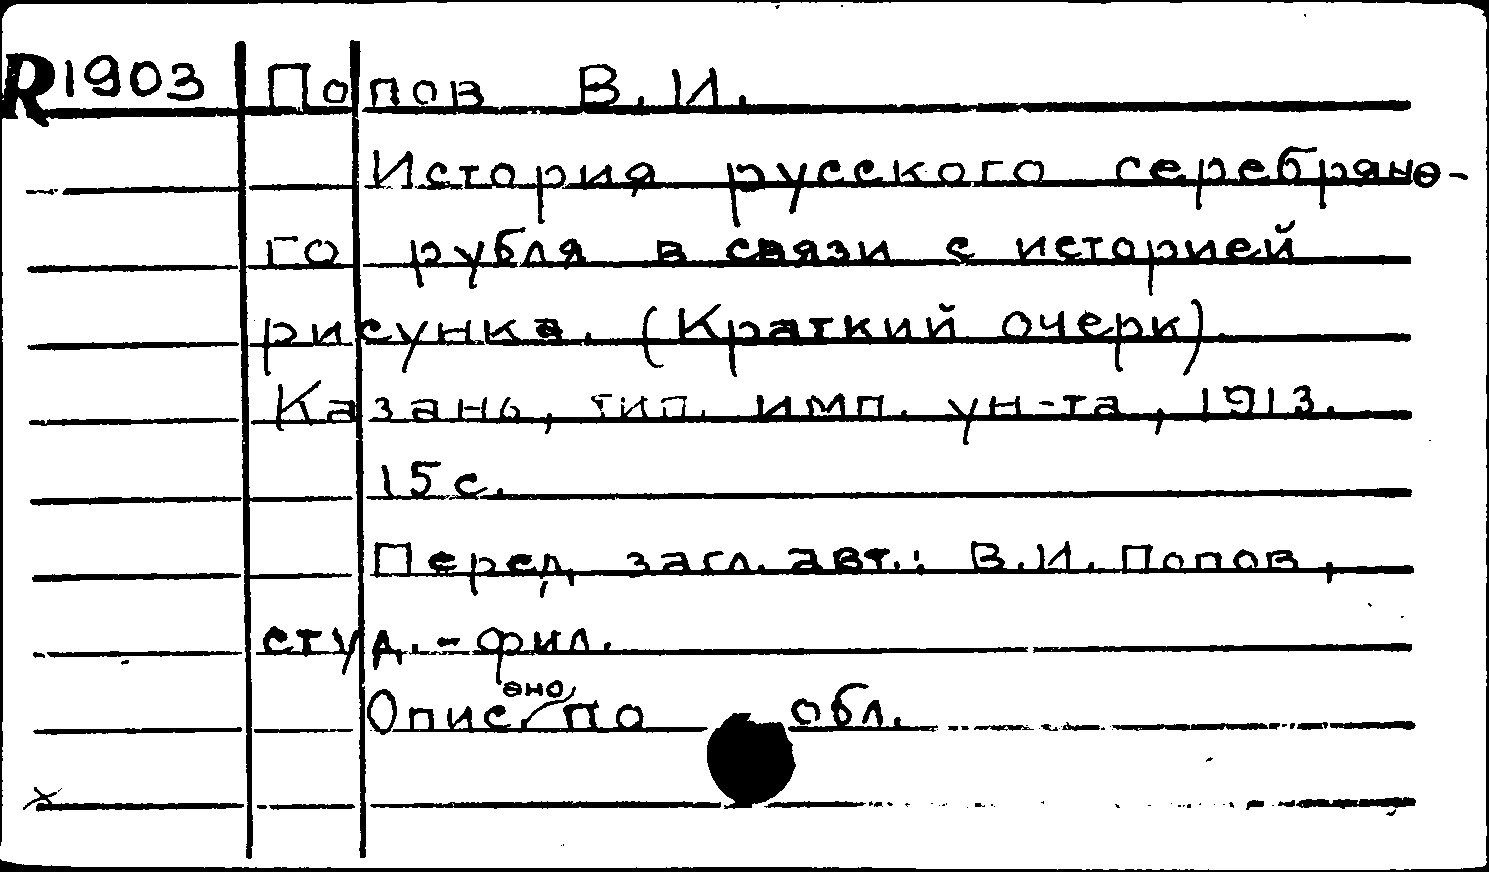 R1903 Попов В. И.
История русского серебряно-
го рубля в связи с историей
рисунка. (Краткий очерк).
Казань, тип. имп. ун-та, 1913.
15 с.
Перед загл. авт.: В.И. Попов,
студ.-фил.
Описано по обл.